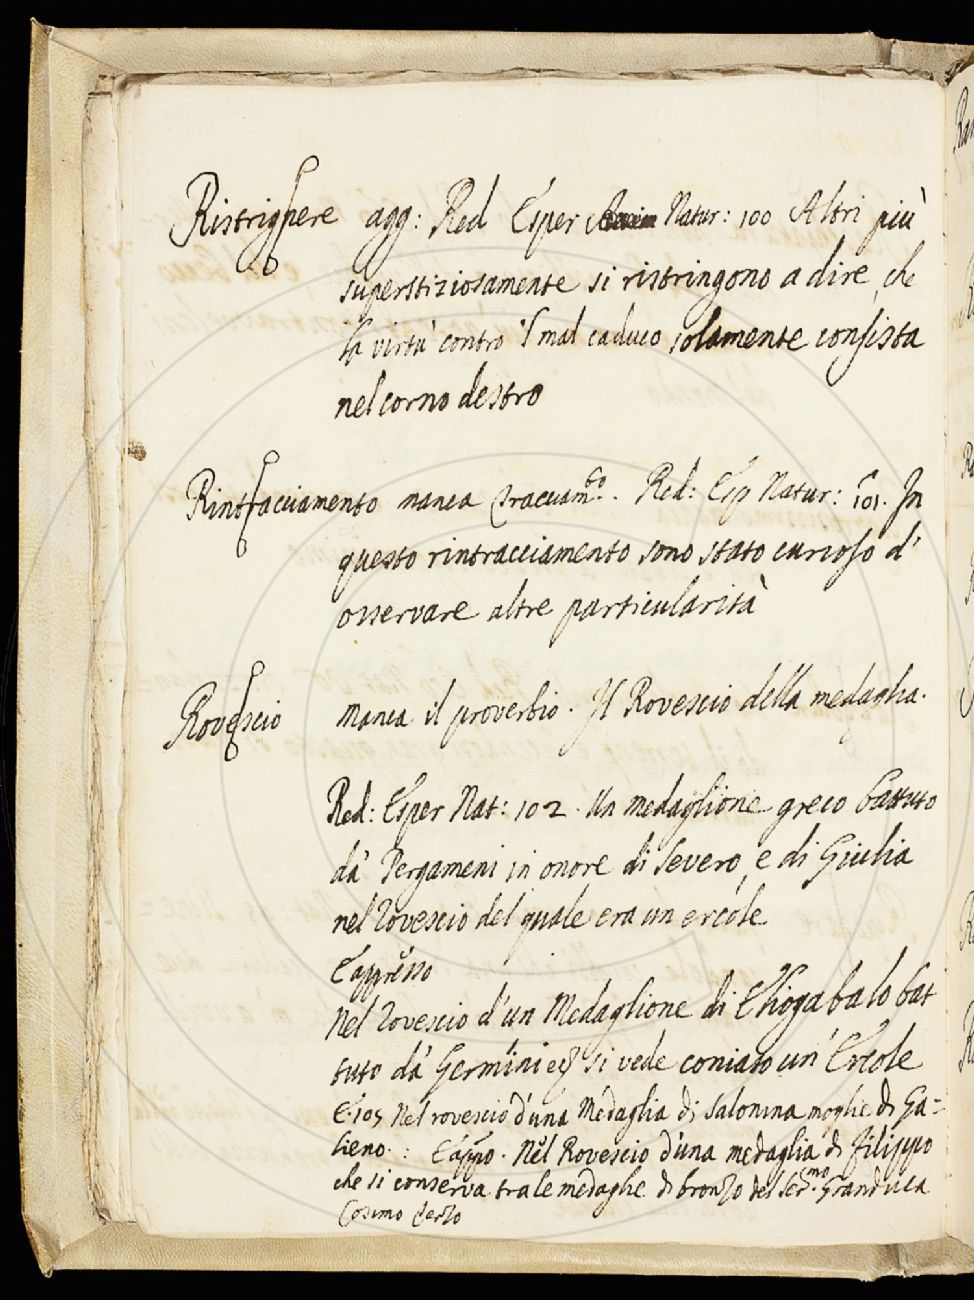 Ristrignere agg: Red Esper Natur: 100 Altri più
superstiziosamente si ristringono a dire, che
la virtù contro 'l mal caduco solamente consista
nel corno destro
Rintracciamento manca Tracciam.to. Red: Esp Natur: 101. In
questo rintracciamento sono stato curioso d'
osservare altre particularità
Rovescio manca il proverbio. Il Rovescio della medaglia.
Red: Esper Nat: 102. Un medaglione greco battuto
dà Pergameni in onore di Severo, e di Giulia
nel Rovescio del quale era un ercole
E appresso
Nel Rovescio d'un Medaglione di Eliogabalo bat
tuto dà Germini si vede coniato un' Ercole
E 105 Nel rovescio d'una Medaglia di Salonina moglie di Ga=
lieno. : E app.o. Nel Rovescio d'una medaglia di Filippo
che si conserva tra le medaglie di bronzo del Ser.mo Granduca
Cosimo Terzo